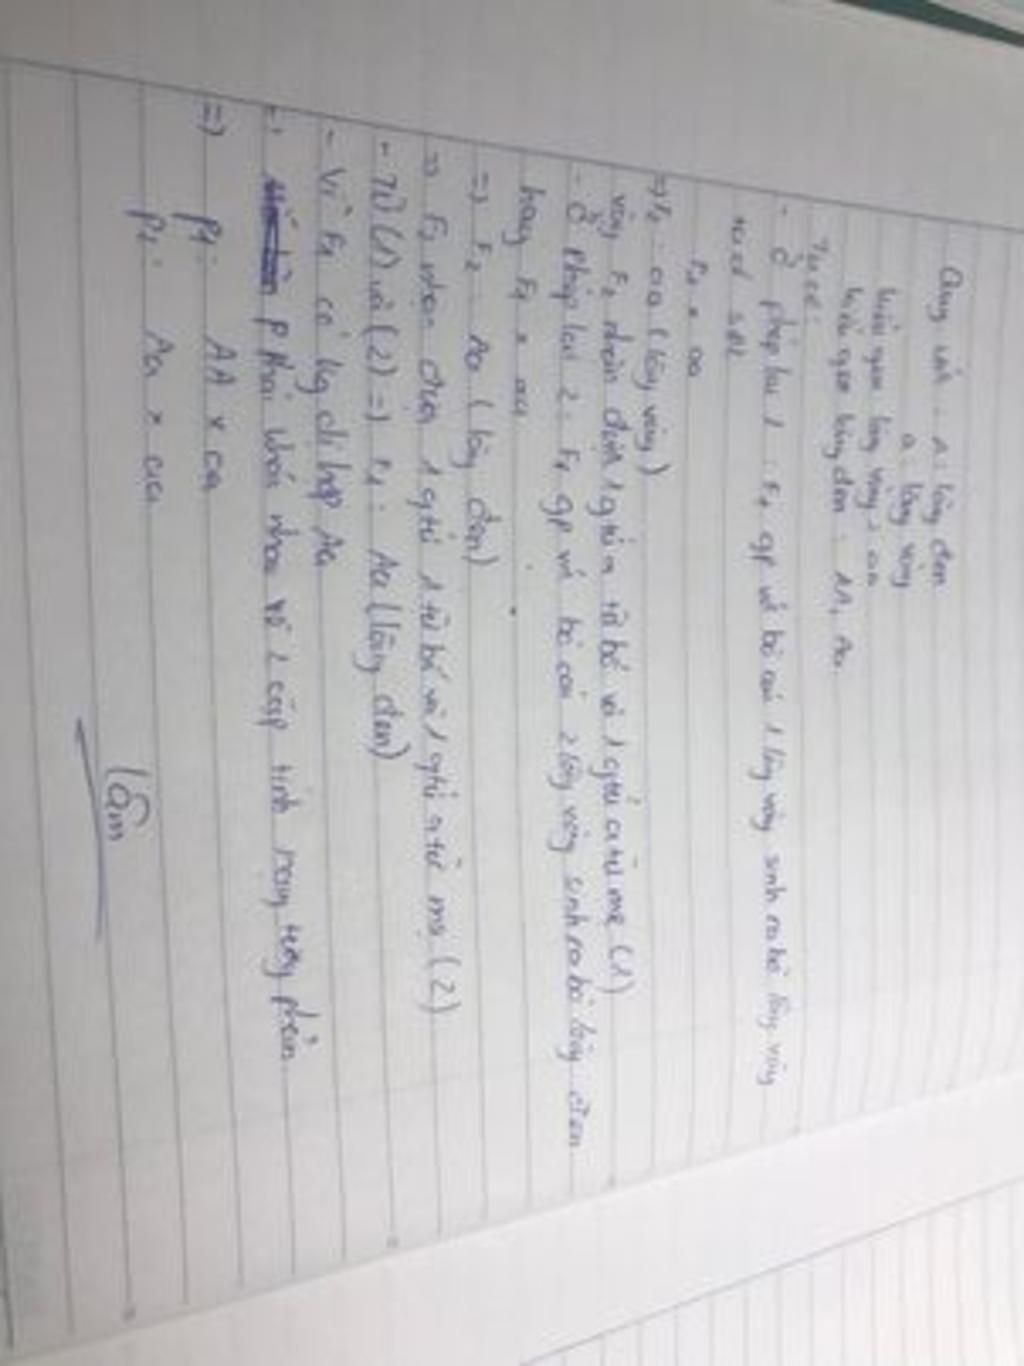 Quy ước: A: lông đen
a: lông vàng
kiểu gen lông vàng: aa
kiểu gen lông đen: AA, Aa
Ta có:
- Ở phép lai 1: F1 gp với bò cái 1 lông vàng sinh ra bê lông vàng
ta có sđl
F1 x aa
=> F2: aa (lông vàng)
vậy F2 nhận định 1 gtử a từ bố và 1 gtử a từ mẹ (1)
- Ở phép lai 2: F1 gp với bò cái 2 lông vàng sinh ra bê lông đen
hay F1 x aa
=> F2: Aa (lông đen)
=> F2 nhận định 1 gtử A từ bố và 1 gtử a từ mẹ (2)
- Từ (1) và (2) => F1: Aa (lông đen)
- Vì F1 có kg dị hợp Aa
=> P phải khác nhau về 1 cặp tính trạng tương phản
=> P1: AA x aa
P1: Aa x aa